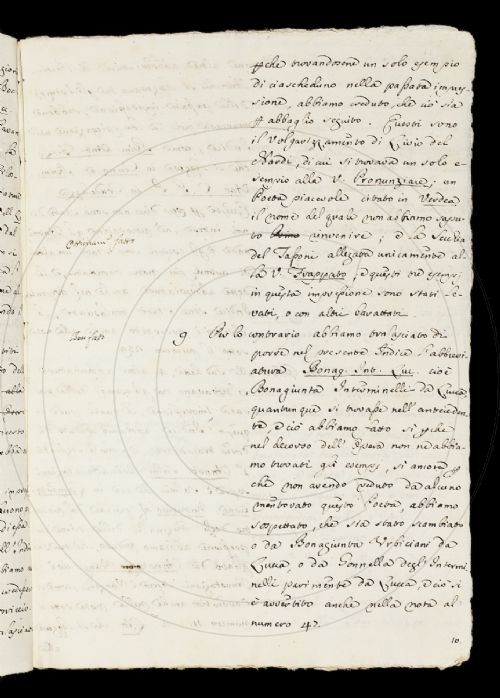 che trovandosene un solo esempio
di ciascheduno nella passata impres-
sione, abbiamo veduto, che ciò sia
abbaglio seguito. Questi sono
il Volgarizzamento di Livio del
Nardi, di cui si trovava un solo e-
sempio alla V. Pronunziare, un
Poeta piacevole citato in Verdea
il nome del quale non abbiamo sapu-
to rinvenire; e la Secchia
del Tassoni allegata unicamente al-
Ottimam. fatto
la V. Trappato, e questi tre esempj
in questa impressione sono stati le-
vati, o con altri barattati.
Ben fatto
9 Per lo contrario abbiamo tralasciato di
porre nel presente Indice l'abbrevi-
atura Bonag. Int. Luc. cioè
Bonagiunta Interminelli da Lucca,
quantunque si trovasse nell'anteceden-
te, e ciò abbiamo fatto sì
nel decorso dell'Opera non ne abbia-
mo trovati gli esempj, sì ancora
chè non avendo veduto da alcuno
mentovato questo Poeta, abbiamo
sospettato, che sia stato scambiato
o da Bonagiunta Urbiciani da
Lucca, o da Gonnella degl'Intermi-
nelli parimente da Lucca, e ciò si
è avvertito anche nella nota al
numero 47.
10.